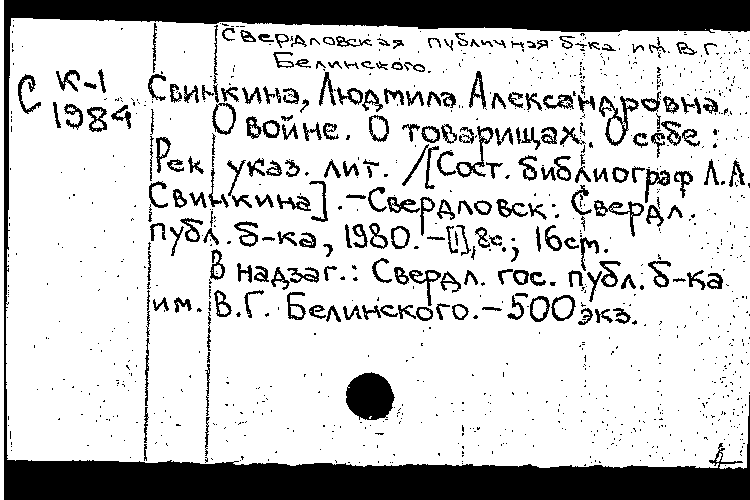 Свердловская публичная б-ка им. В.Г.
Белинского.
С К-1
1984
Свинкина, Людмила Александровна.
О войне. О товарищах. О себе:
Рек. указ. лит. /[Сост. библиограф Л.А.
Свинкина]. -Свердловск: Свердл.
публ. б-ка, 1980. -[1], 8с.; 16см.
В надзаг.: Свердл. гос. публ. б-ка
им. В.Г. Белинского. -500 экз.